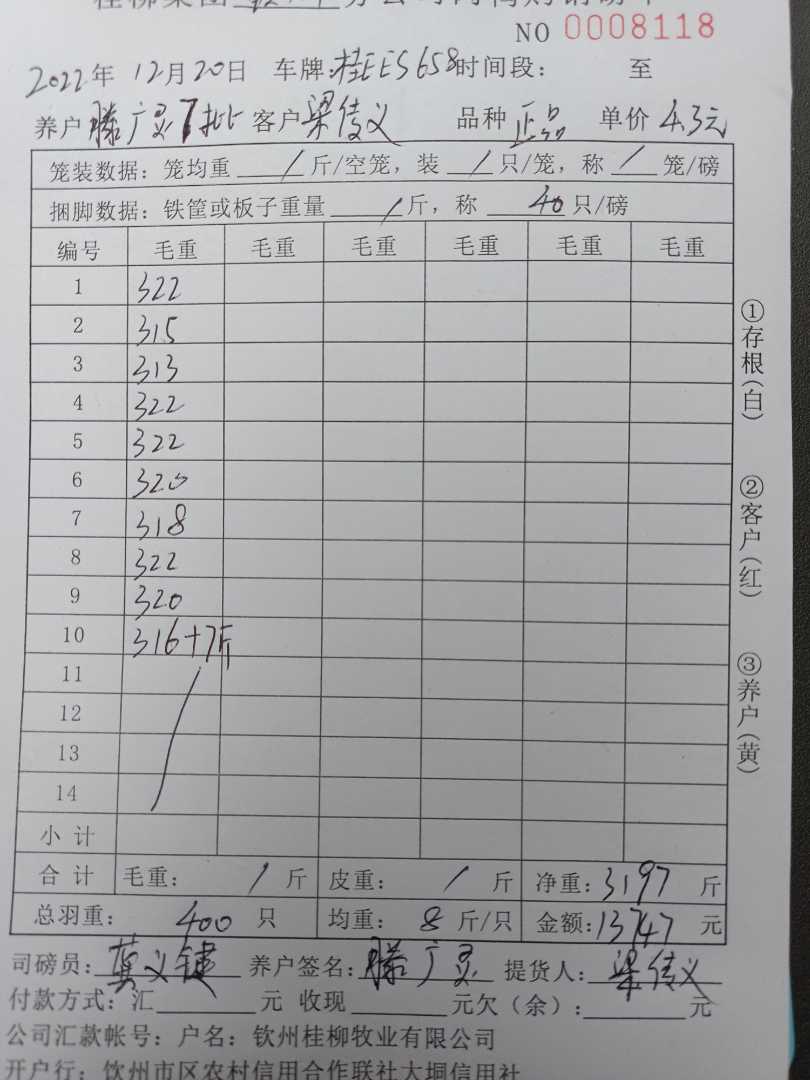 NO 0008118
2022年 12月20日 车牌:桂EES658时间段: 至
养户 滕广灵7批 客户 梁传义 品种 正品 单价 4.3元
笼装数据: 笼均重 / 斤/空笼, 装 / 只/笼, 称 / 笼/磅
捆脚数据: 铁筐或板子重量 / 斤, 称 40 只/磅
编号 毛重 毛重 毛重 毛重 毛重 毛重
1 322
2 315
3 313
4 322
5 322
6 320
7 318
8 322
9 320
10 316+7斤
11
12
13
14
小计
合计 毛重: / 斤 皮重: / 斤 净重: 3197 斤
总羽重: 400 只 均重: 8 斤/只 金额: 13747 元
司磅员: 莫义键 养户签名: 滕广灵 提货人: 梁传义
付款方式: 汇 元 收现 元欠(余): 元
公司汇款帐号: 户名: 钦州桂柳牧业有限公司
开户行: 钦州市区农村信用合作联社大垌信用社
①存根(白)
②客户(红)
③养户(黄)